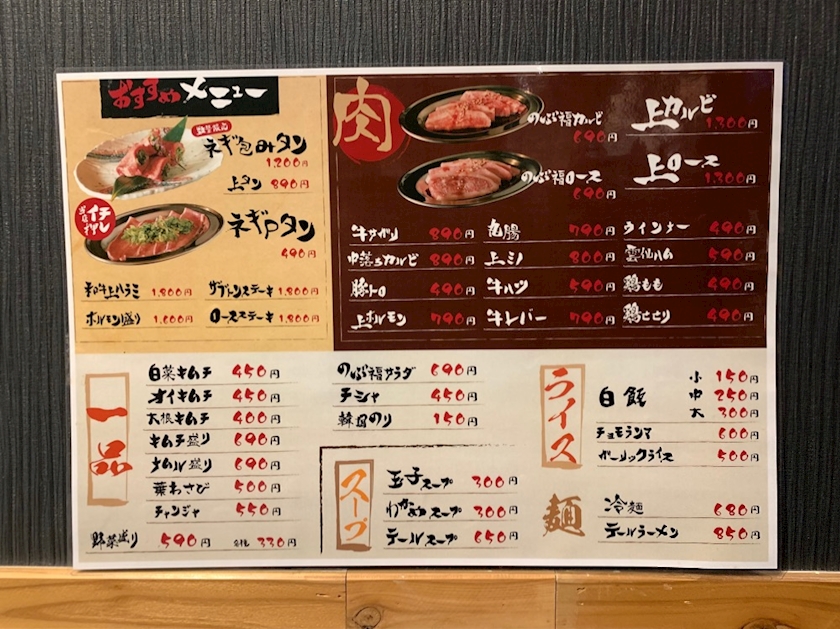 おすすめメニュー
数量限定
ネギ包みタン
1,200円
上タン 890円
当店イチ押し
ネギPタン
490円
和牛上ハラミ 1,800円
ザブトンステーキ 1,800円
ホルモン盛り 1,600円
ロースステーキ 1,800円
肉
のぶ福カルビ
690円
上カルビ
1,300円
のぶ福ロース
690円
上ロース
1,300円
牛サガリ 890円
丸腸 790円
ウインナー 490円
中落ちカルビ 890円
上ミノ 800円
雲仙ハム 590円
豚トロ 490円
牛ハツ 590円
鶏もも 490円
上ホルモン 790円
牛レバー 790円
鶏せせり 490円
一品
白菜キムチ 450円
オイキムチ 450円
大根キムチ 400円
キムチ盛り 690円
ナムル盛り 690円
葉わさび 500円
チャンジャ 550円
野菜盛り 590円
330円
のぶ福サラダ 690円
チシャ 450円
韓国のり 150円
スープ
玉子スープ 300円
わかめスープ 300円
テールスープ 650円
ライス
白飯
小 150円
中 250円
大 300円
チョモランマ 600円
ガーリックライス 500円
麺
冷麺 680円
テールラーメン 850円